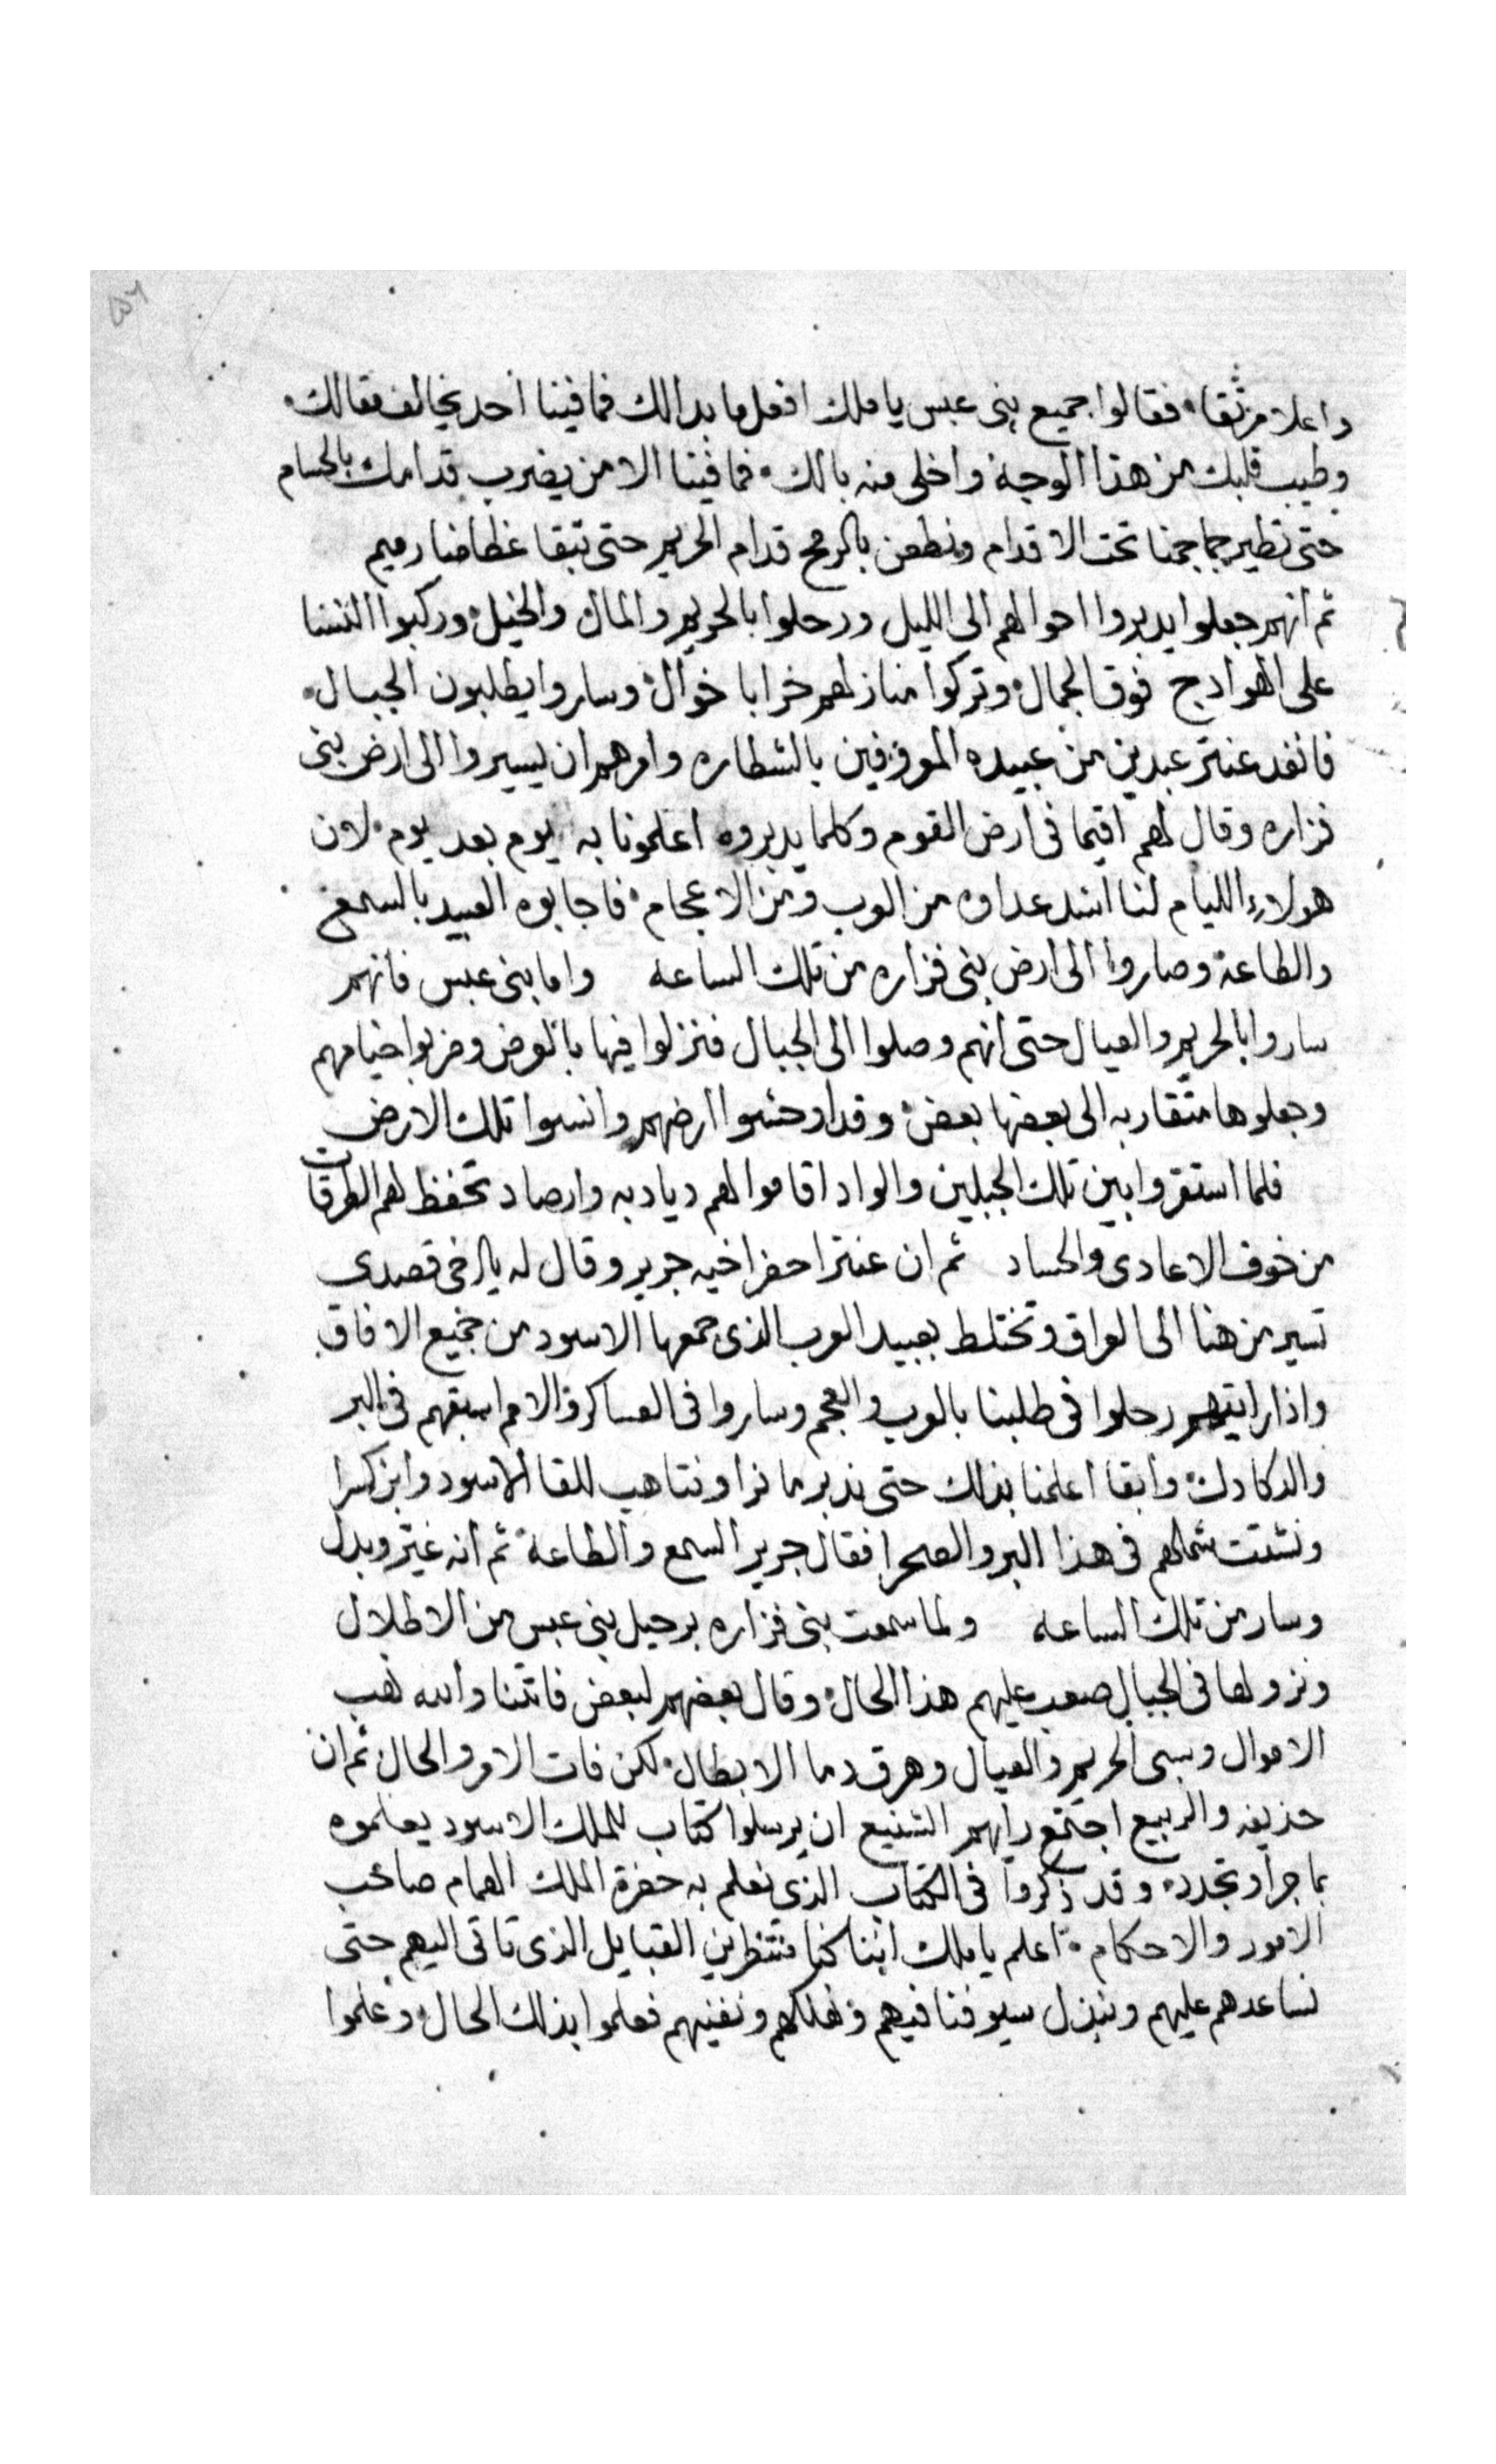 واعلا مرتقا۰ فقالوا جميع بنى عبس يا ملك افعل ما بدالك فما فينا احد يخالف مقالك۰
وطيب قلبك من هذا الوجه واخلى منه بالك۰ فما فينا الا من يضرب قدامك بالحسام
حتى تطير جماجمنا تحت الاقدام ونطعن بالرمح قدام الحريم حتى تبقا عظامنا رميم
ثم انهم جعلوا يدبروا احوالهم الى الليل ورحلوا بالحريم والمال والخيل وركبوا النسا
على الهوادج فوق الجمال وتركوا منازلهم خرابا خوال وساروا يطلبون الجبال۰
فانفد عنتر عبدين من عبيده الموزفين بالشطاره وامرهم ان يسيروا الى ارض بنى
فزاره وقال لهم اقيما فى ارض القوم وكلما يدبروه اعلمونا به يوم بعد يوم۰ لان
هولاء الليام لنا اشد عداوه من العرب ومن الاعجام۰ فاجابوه العبيد بالسمع
والطاعة وصاروا الى ارض بنى فزاره من تلك الساعه واما بنى عبس فانهم
ساروا بالحريم والعيال حتى انهم وصلوا الى الجبال فنزلوا فيها بالعرض وضربوا خيامهم
وجعلوها متقاربه الى بعضها بعض وقد اوحشوا ارضهم وانسوا تلك الارض
فلما استقروا بين تلك الجبلين والواد اقاموا لهم ديادبه وارصاد تحفظ لهم الطرقات
من خوف الاعادى والحساد ثم ان عنترا حضر اخيه جرير وقال له يا اخى قصدى
تسير من هنا الى العراق وتختلط بعبيد العرب الذى جمعها الاسود من جميع الافاق
واذا رايتهم رحلوا فى طلبنا بالعرب والعجم وساروا فى العساكر والامم اسبقهم فى البر
والدكادك وابقا اعلمنا بذلك حتى ندبر ما نرا ونتاهب للقا الاسود وابن كسرا
ونشتت شملهم فى هذا البر والصحرا فقال جرير السمع والطاعة ثم انه غير وبدل
وسار من تلك الساعه ولما سمعت بنى فزاره برحيل بنى عبس من الاطلال
ونزولها فى الجبال صعب عليهم هذا الحال وقال بعضهم لبعض فاتنا والله نهب
الاموال وسبى الحريم والعيال وهرق دما الابطال۰ لكن فات الامر والحال ثم ان
حذيفه والربيع اجتمع رايهم الشنيع ان يرسلوا كتاب للملك الاسود يعلموه
بما جرا وتجدد۰ وقد ذكروا فى الكتاب الذى نعلم به حضرة الملك الهمام صاحب
الامور والاحكام۰ اعلم يا ملك اننا كنا منتظرين القبايل الذى تاتى اليهم حتى
نساعدهم عليهم ونبذل سيوفنا فيهم ونهلكهم ونفنيهم فعلموا بذلك الحال وعلموا